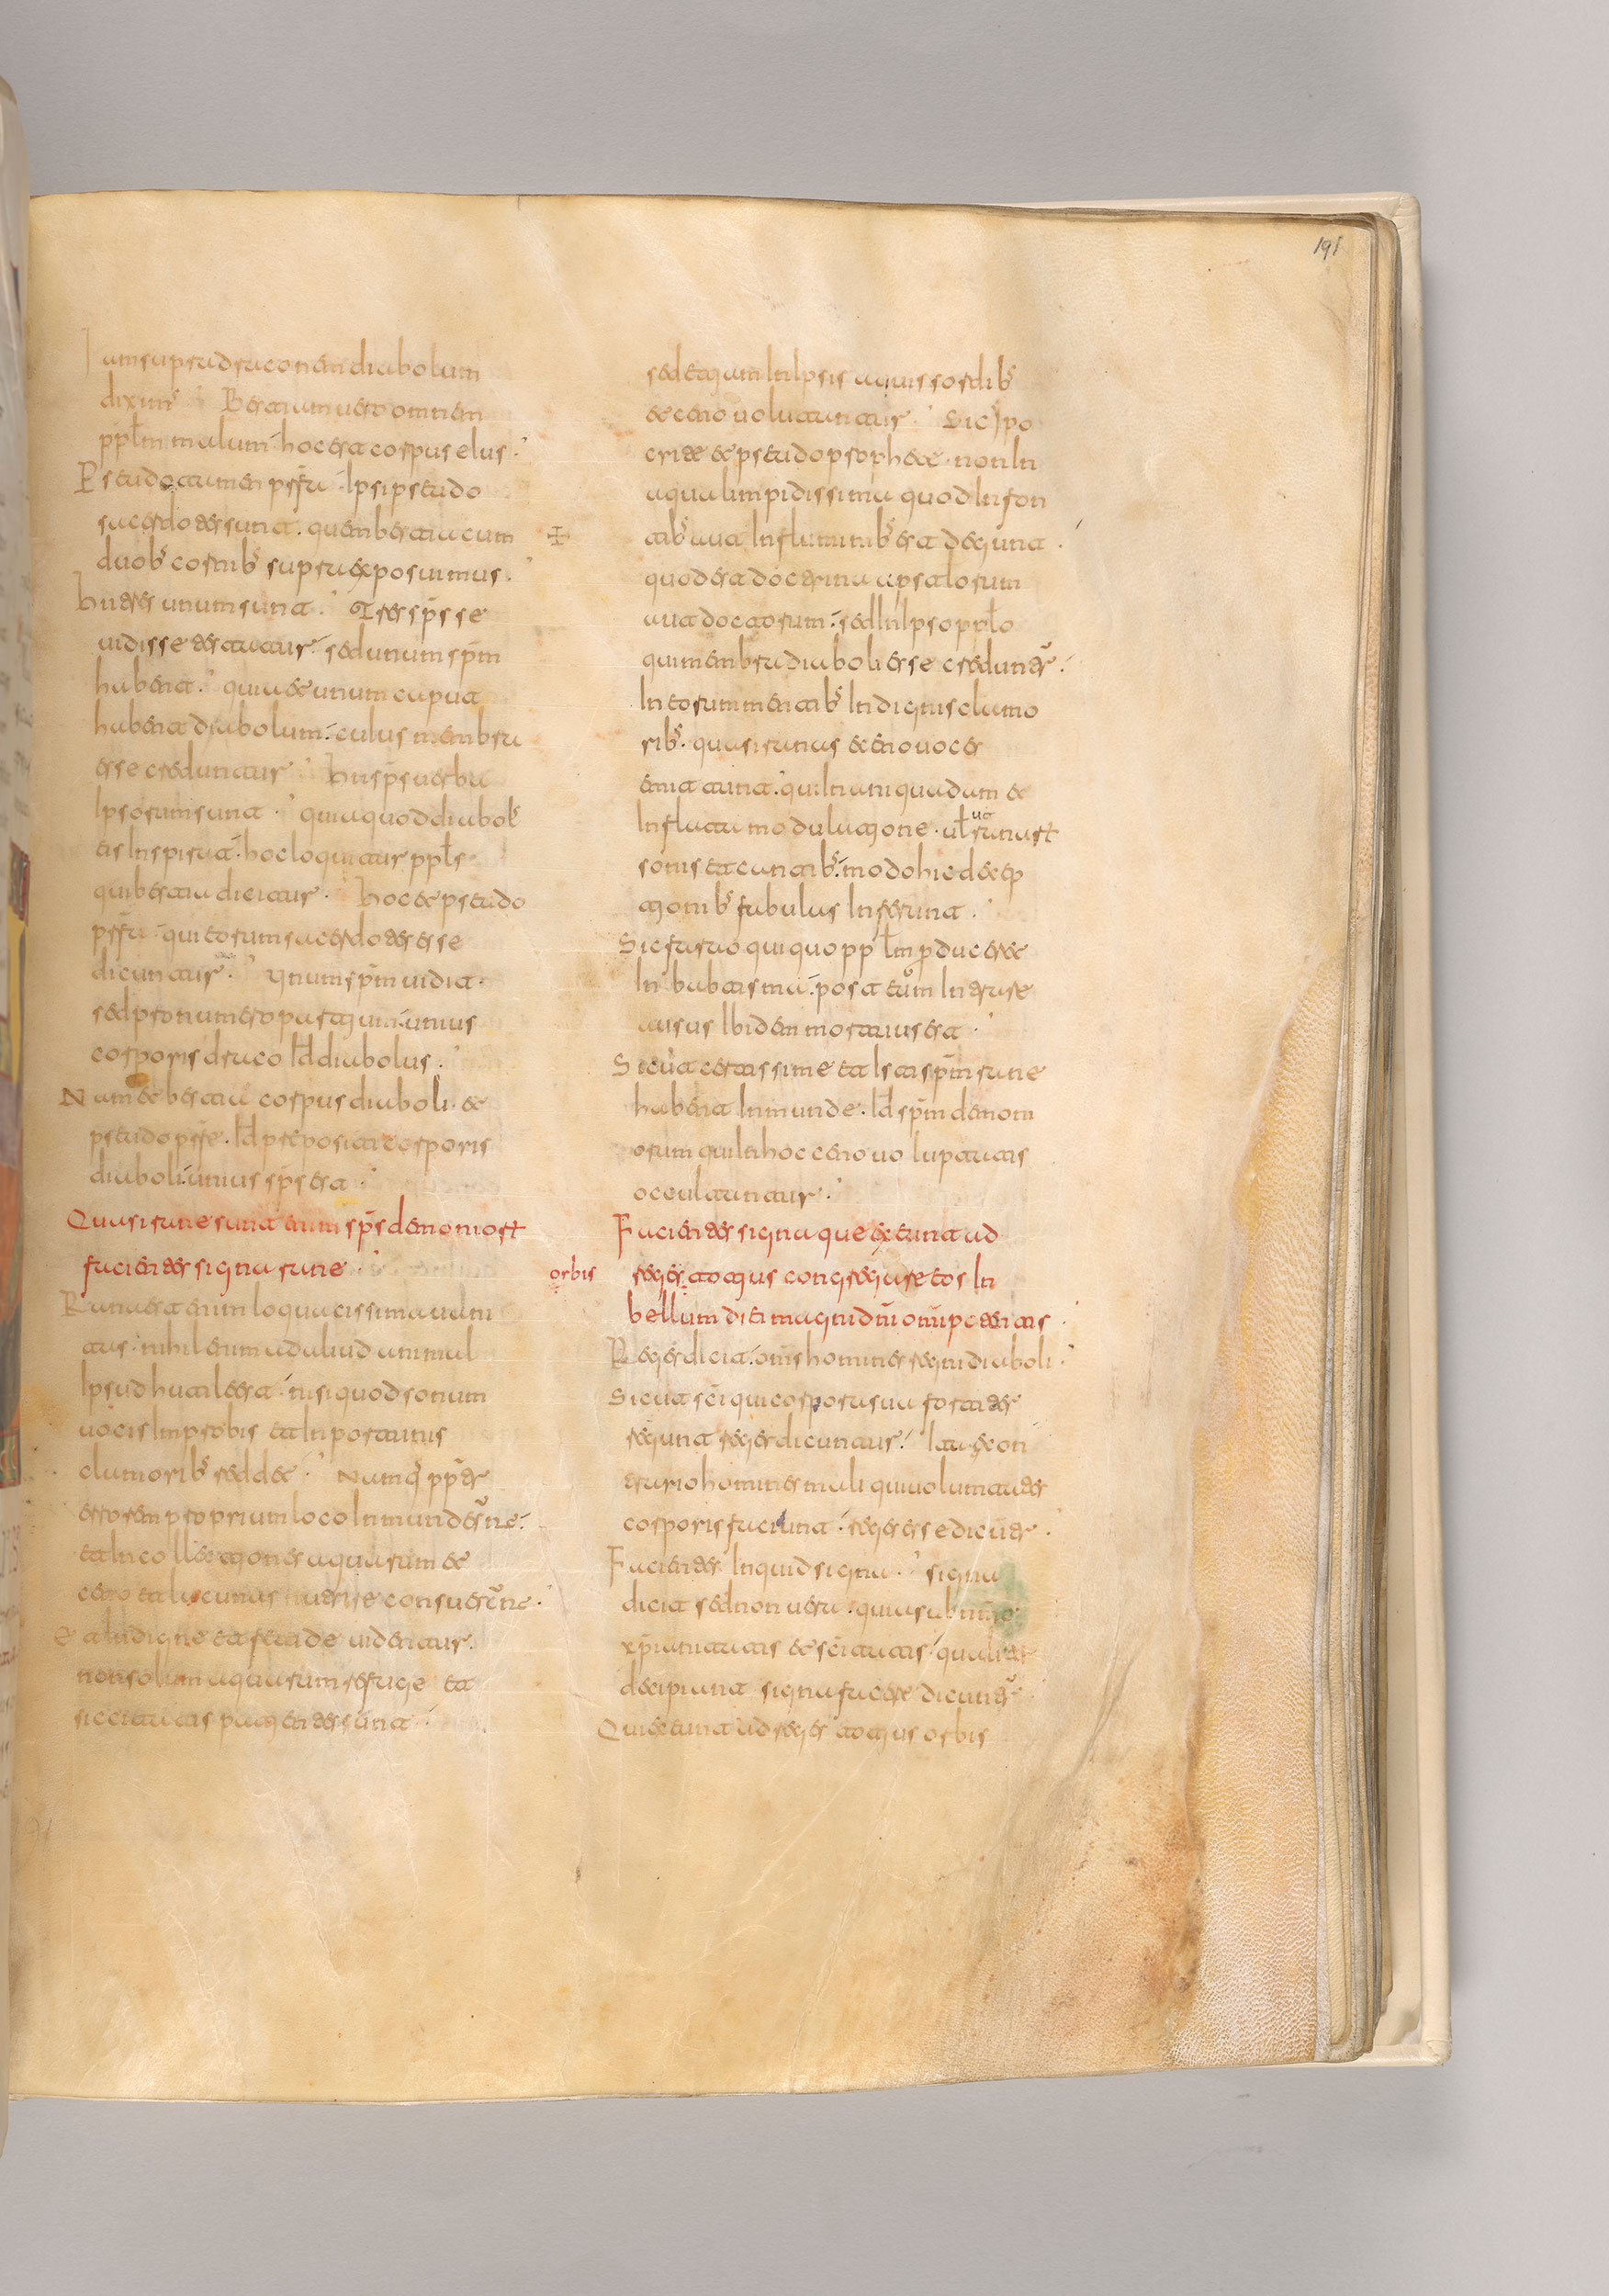 191
Iam supra draconem diabolum
diximus. Bestiam vero omnem
pplm malum hoc est corpus eius.
Pseudo tamen pfta ipsi pseudo
sacerdotes sunt. quem bestia cum
duobs cornibs supra exposuimus.
hii tres unum sunt. Tres sps se
vidisse testatur. sed unum spm
habent. quia et unum caput
habent diabolum. cuius membra
esse creduntur. hii sps verba
ipsorum sunt. quia quod diabolus
eis inspirat. hoc loquitur ppls
qui bestia dicitur. hoc et pseudo
pfta qui eorum sacerdotes esse
dicuntur. Unum spm vidit.
sed pro numero partium. unius
corporis draco id diabolus.
Nam et bestia corpus diaboli. et
pseudo pfte. id prepositi corporis
diaboli. unius sps est.
Quasi rane sunt enim sps demoniorum
facientes signa rane.
Rana est enim loquacissima vani
tas. nihil enim ad aliud animal
ipsud hutile est. nisi quod sonum
vocis improbis et inportunis
clamoribs reddet. Namq ppter
errorem proprium loco inmundo
et in collectiones aquarum et
ceno et lacunas natare consuerunt.
Et indigne et fetide videntur.
non solum aquarum refuge et
siccitatis patientes sunt
sed etiam in ipsis aquis sordibs
et ceno volutantur. Sic ypo
crite et pseudoprophete. non in
aqua limpidissima quod in fon
tibs aut in fluminibs est degunt.
quod est doctrina apstolorum
aut doctorum. sed in ipso pplo
qui membra diaboli esse creduntur.
In eorum mentibs indignis clamo
ribs. quasi ranas et eno voces
emittunt. qui in antiquadam et
in fluctu modulatione. vl ranarum
ua
sonis et cantibs. modo hic decep
tionibs fabulas inserunt.
Sic farao qui quo pplm produceret
in babtisma. post eum intrare
ausus ibidem mortuus est.
Sicut certissime et isti spm rane
habent inmunde. id spm demoni
orum qui in hoc ceno voluptatis
occultantur.
Facientes signa que exeunt ad
orbis
reges totius congregare eos in
bellum diei magni dni omnipotentis.
Reges dicit. omns homines regni diaboli.
Sicut sci qui corpora sua fortiter
regunt reges dicuntur. ita et con
trario homines mali qui volumtates
corporis faciunt. reges esse dicunt.
Facientes inquid signa. signa
dicit sed non vera. quia sub nomine
xpianitatis et scitatis. qualiter
decipiant signa facere dicuntur
Qui exeunt ad reges totius orbis